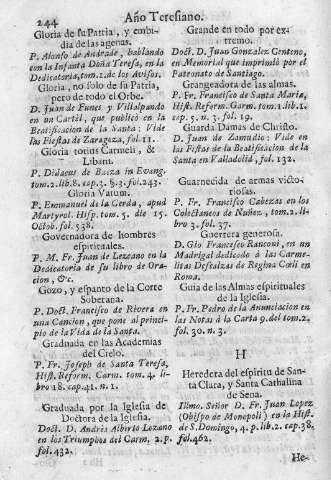 244
Año Teresiano.
Gloria de su Patria, y embi-
dia de las agenas.
P. Alonso de Andrade, hablando
con la Infanta Doña Teresa, en la
Dedicatoria, tom. 2. de los Avisos.
Gloria, no solo de su Patria,
pero de todo el Orbe.
D. Juan de Funes y Villalpando
en un Cartèl, que publicò en la
Beatificacion de la Santa: Vide
las Fiestas de Zaragoza, fol. 11.
Gloria totius Carmeli, &
Libani.
P. Didacus de Baeza in Evang.
tom. 2. lib. 8. cap. 5. §. 3. fol. 243.
Gloria Vatum.
P. Emmanuel de la Cerda, apud
Martyrol. Hisp. tom. 5. die 15.
Octob. fol. 538.
Governadora de hombres
espirituales.
P. M. Fr. Juan de Lezano en la
Dedicatoria de su libro de Ora-
cion, &c.
Gozo, y espanto de la Corte
Soberana.
P. Doct. Francisco de Rivera en
una Cancion, que pone al princi-
pio de la Vida de la Santa.
Graduada en las Academias
del Cielo.
P. Fr. Joseph de Santa Teresa,
Hist. Reform. Carm. tom. 4. li-
bro 18. cap. 41. n. 1.
Graduada por la Iglesia de
Doctora de la Iglesia.
Doct. D. Andrès Alberto Lozano
en los Triumphos del Carm. 2. p.
fol. 432.
Grande en todo por ex-
tremo.
Doct. D. Juan Gonzalez Centeno,
en Memorial que imprimiò por el
Patronato de Santiago.
Grangeadora de las almas.
P. Fr. Francisco de Santa Maria,
Hist. Reform. Garm. tom. 1. lib. 1.
cap. 5. n. 3. fol. 19.
Guarda Damas de Christo.
D. Juan de Zamudio: Vide en
las Fiestas de la Beatificacion de la
Santa en Valladolid, fol. 132.
Guarnecida de armas victo-
riosas.
P. Fr. Francisco Cabezas en los
Colectaneos de Nuñez, tom. 2. li-
bro 3. fol. 37.
Guerrera generosa.
D. Gio Francesco Ranconi, en un
Madrigal dedicado à las Carme-
litas Descalzas de Regina Cœli en
Roma.
Guia de las Almas espirituales
de la Iglesia.
P. Fr. Pedro de la Anunciacion en
las Notas à la Carta 9. del tom. 2.
fol. 30. n. 3.
H
Heredera del espiritu de San-
ta Clara, y Santa Cathalina
de Sena.
Illmo. Señor D. Fr. Juan Lopez
(Obispo de Monopoli) en la Hist.
de S. Domingo, 4. p. lib. 2. cap. 38.
fol. 462.
He-